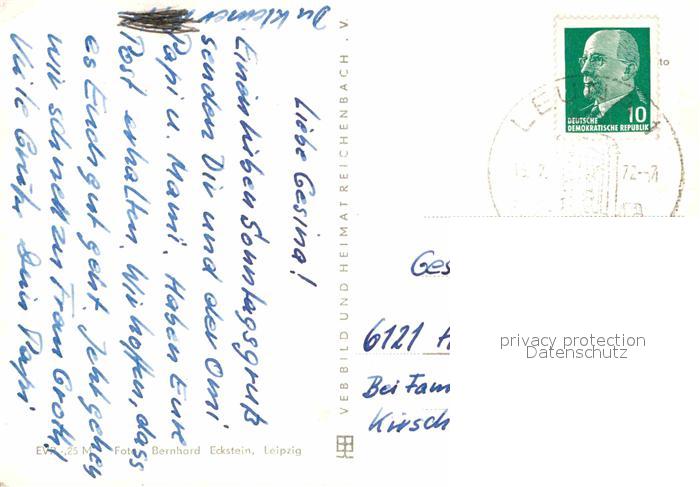 Liebe Gesina!
Einen lieben Sonntagsgruß
senden Dir und der Omi
Papi u. Mami. Haben Eure
Post erhalten. Wir hoffen, dass
es Euch gut geht. Jetzt gehen
wir schnell zu Frau Groth!
Viele Grüße Dein Papi
Du kleiner
VEB BILD UND HEIMAT REICHENBACH . V.
EVP -,25 M Foto: Bernhard Eckstein, Leipzig
10
DEUTSCHE
DEMOKRATISCHE REPUBLIK
72-
Ges
6121 H
Bei Fam
Kirsch
privacy protection
Datenschutz